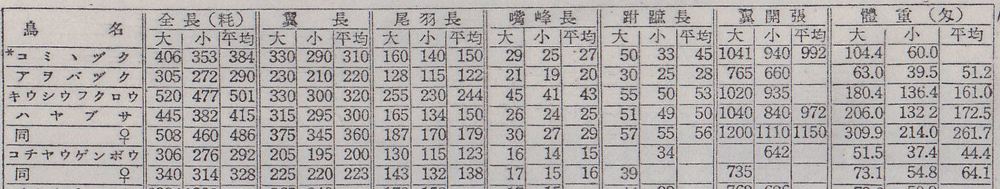 鳥名 全長(粍) 翼長 尾羽長 嘴峰長 跗蹠長 翼開張 體重(匁)
大 小 平均 大 小 平均 大 小 平均 大 小 平均 大 小 平均 大 小 平均 大 小 平均
*コミヽヅク 406 353 384 330 290 310 160 140 150 29 25 27 50 33 45 1041 940 992 104.4 60.0
アヲバヅク 305 272 290 230 210 220 128 115 122 21 19 20 30 25 28 765 660 63.0 39.5 51.2
キウシウフクロウ 520 477 501 330 300 320 255 230 244 45 41 43 55 50 53 1020 935 180.4 136.4 161.0
ハヤブサ 445 382 415 315 295 300 165 134 150 26 24 25 51 49 50 1040 840 972 206.0 132 2 172.5
同 ♀ 508 460 486 375 345 360 187 170 179 30 27 29 57 55 56 1200 1110 1150 309.9 214.0 261.7
コチヤウゲンボウ 306 276 292 205 195 200 130 115 123 16 14 15 34 642 51.5 37.4 44.4
同 ♀ 340 314 328 225 220 223 143 132 138 17 15 16 39 735 73.1 54.8 64.1